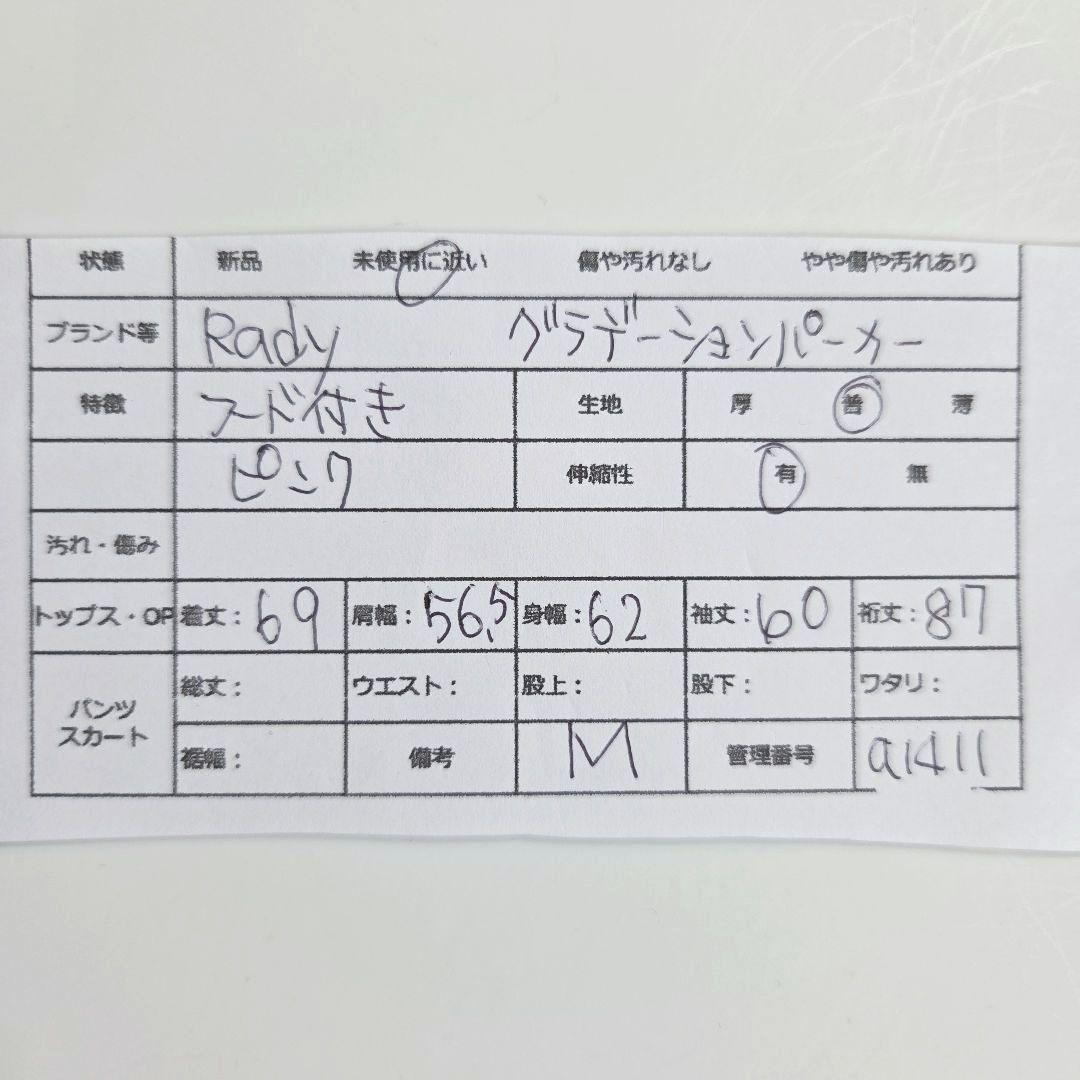 状態 新品 未使用に近い 傷や汚れなし やや傷や汚れあり
ブランド等 Rady グラデーションパーカー
特徴 フード付き 生地 厚 普 薄
ピンク 伸縮性 有 無
汚れ・傷み
トップス・OP 着丈：69 肩幅：56.5 身幅：62 袖丈：60 裄丈：87
パンツ スカート 総丈： ウエスト： 股上： 股下： ワタリ：
裾幅： 備考 M 管理番号 a1411